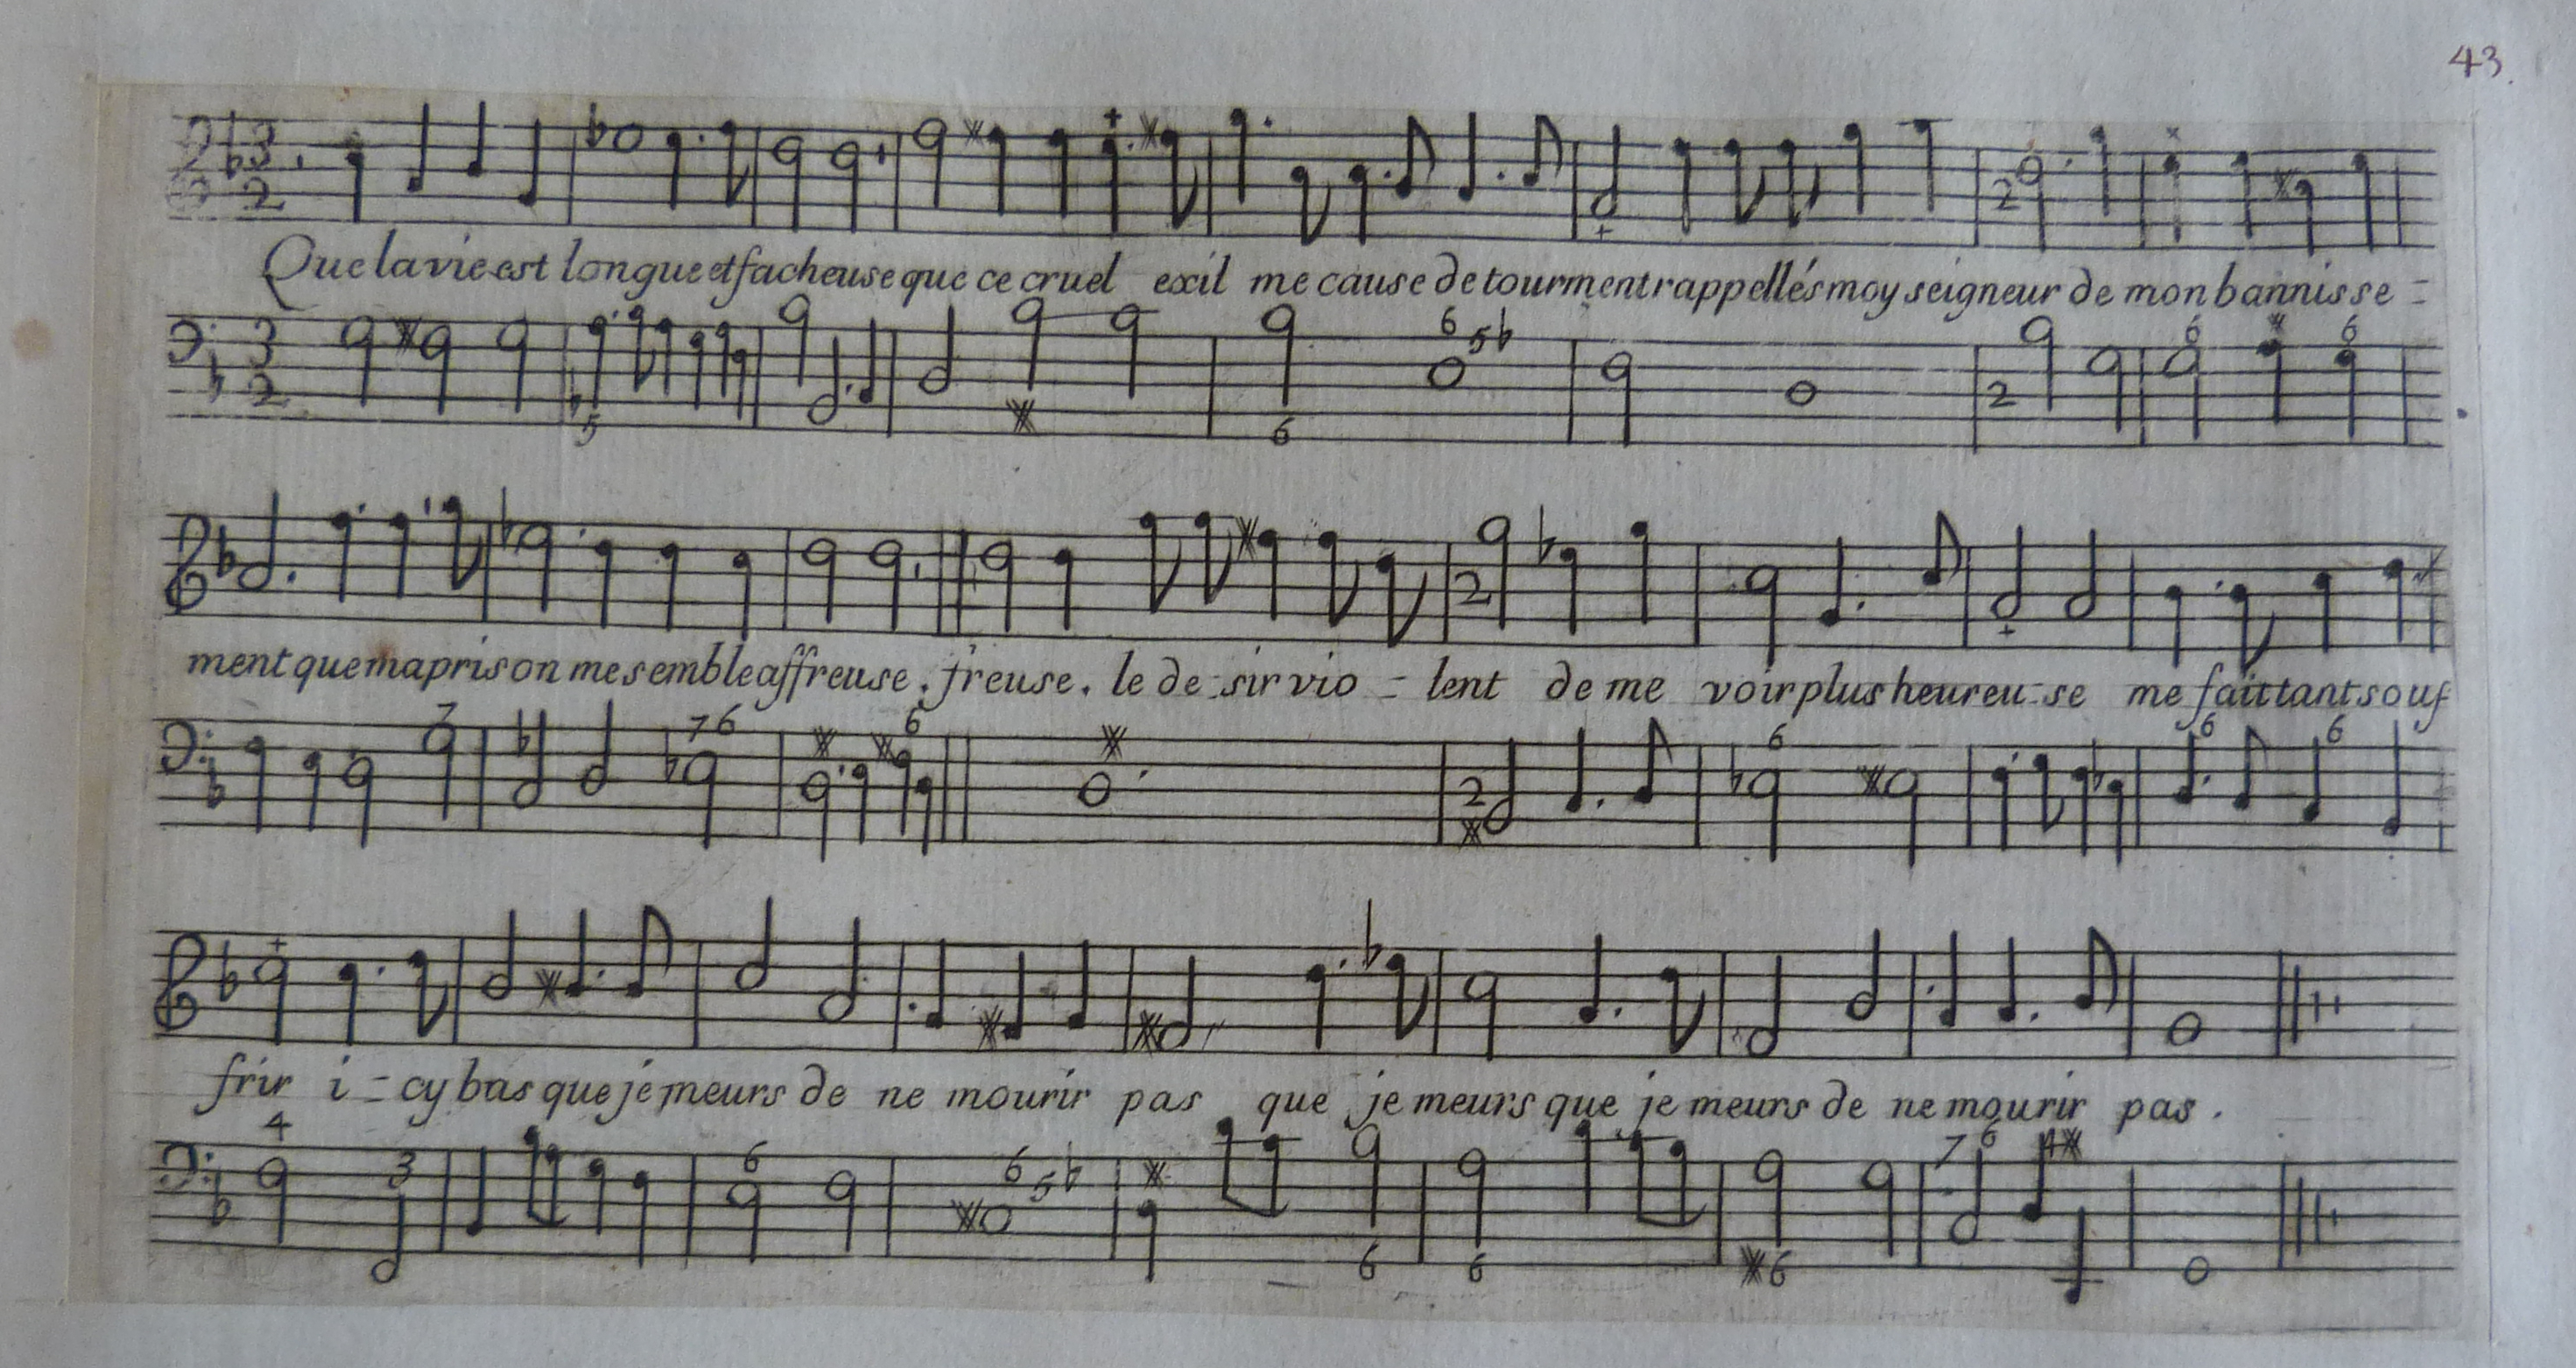 43
Que la vie est longue et facheuse que ce cruel exil me cause de tourment rappellés moy seigneur de mon bannisse =
6 5♭ 6 6
5 6
ment que ma prison me semble affreuse . freuse . le de = sir vio = lent de me voir plus heureu = se me fait tant souf
7 7 6 6 6 6 6
frir i = cy bas que je meurs de ne mourir pas que je meurs que je meurs de ne mourir pas .
4 3 6 6 5♭ 7 6 4
6 6 6